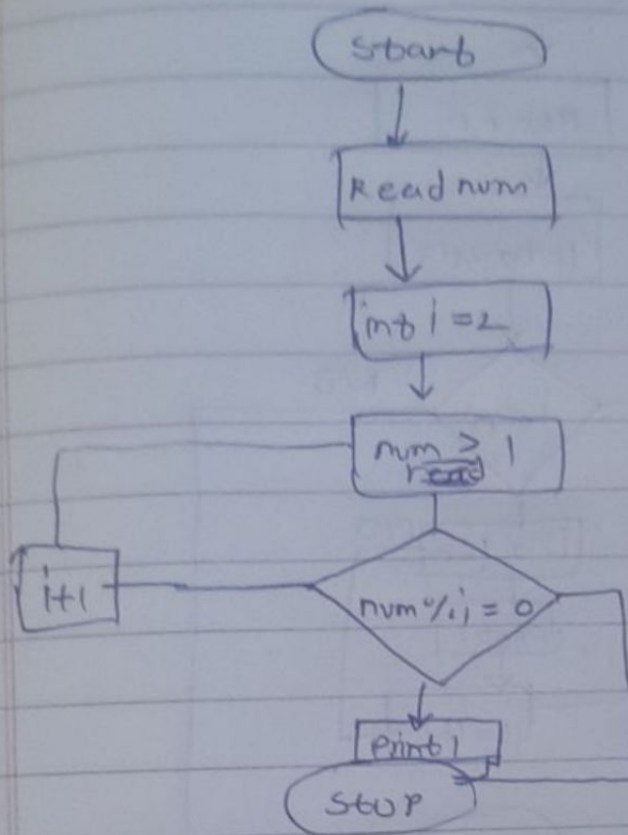 start
Read num
int i = 2
num > 1
read
i+1
num % i = 0
print i
stop